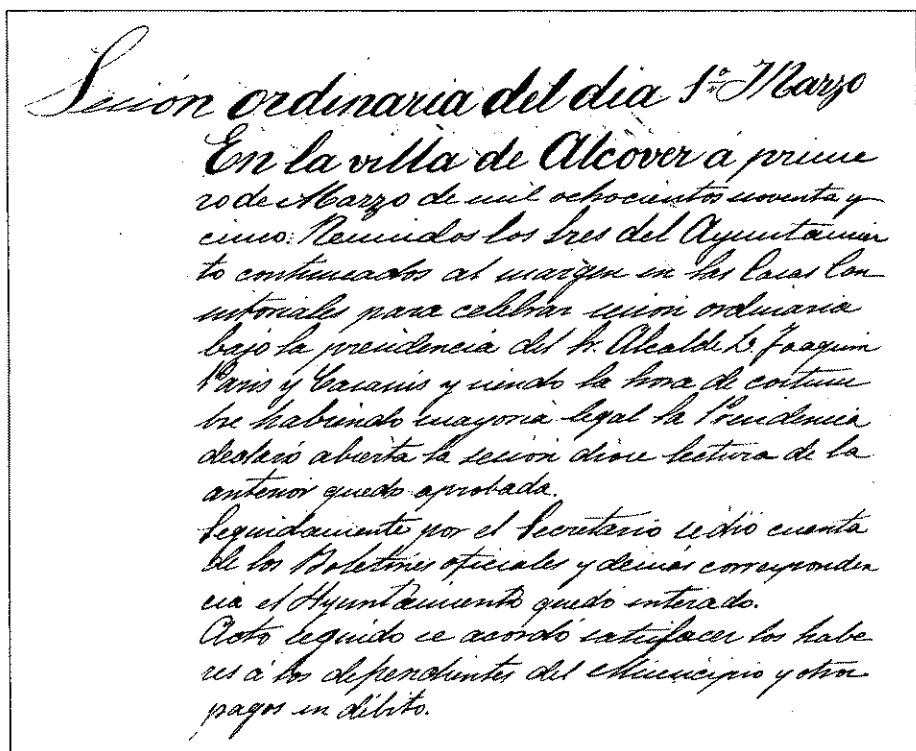 Sesión ordinaria del dia 1º Marzo
En la villa de Alcover á prime
ro de Marzo de mil ochocientos noventa y
cinco. Reunidos los Sres del Ayuntamien
to continuados al margen en las Casas Con
sistoriales para celebrar sesion ordinaria
bajo la presidencia del Sr. Alcalde D. Joaquin
y siendo la hora de costum
bre habiendo mayoria legal la Presidencia
declaró abierta la sesion diose lectura de la
anterior quedo aprobada.
Seguidamente por el Secretario se dió cuenta
de los Boletines oficiales y demás corresponden
cia el Ayuntamiento quedó enterado.
Acto seguido se acordó satisfacer los habe
res á los dependientes del Municipio y otros
pagos en débito.